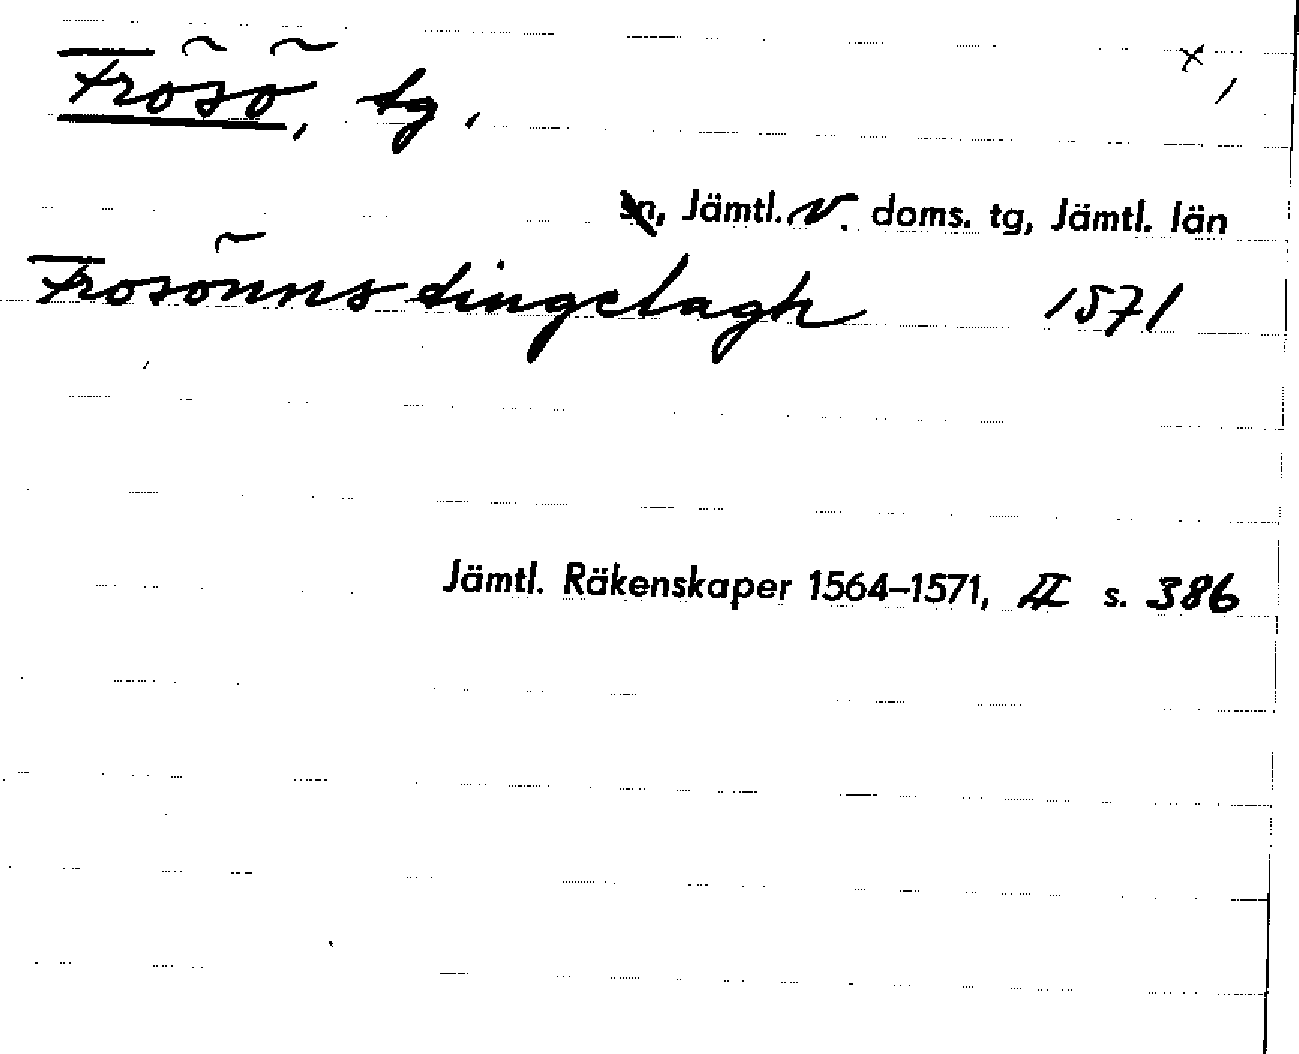 Frösö, tg. x /
sn, Jämtl. v. doms. tg, Jämtl. län
Frosönns tingelagh 1571
Jämtl. Räkenskaper 1564–1571, II s. 386